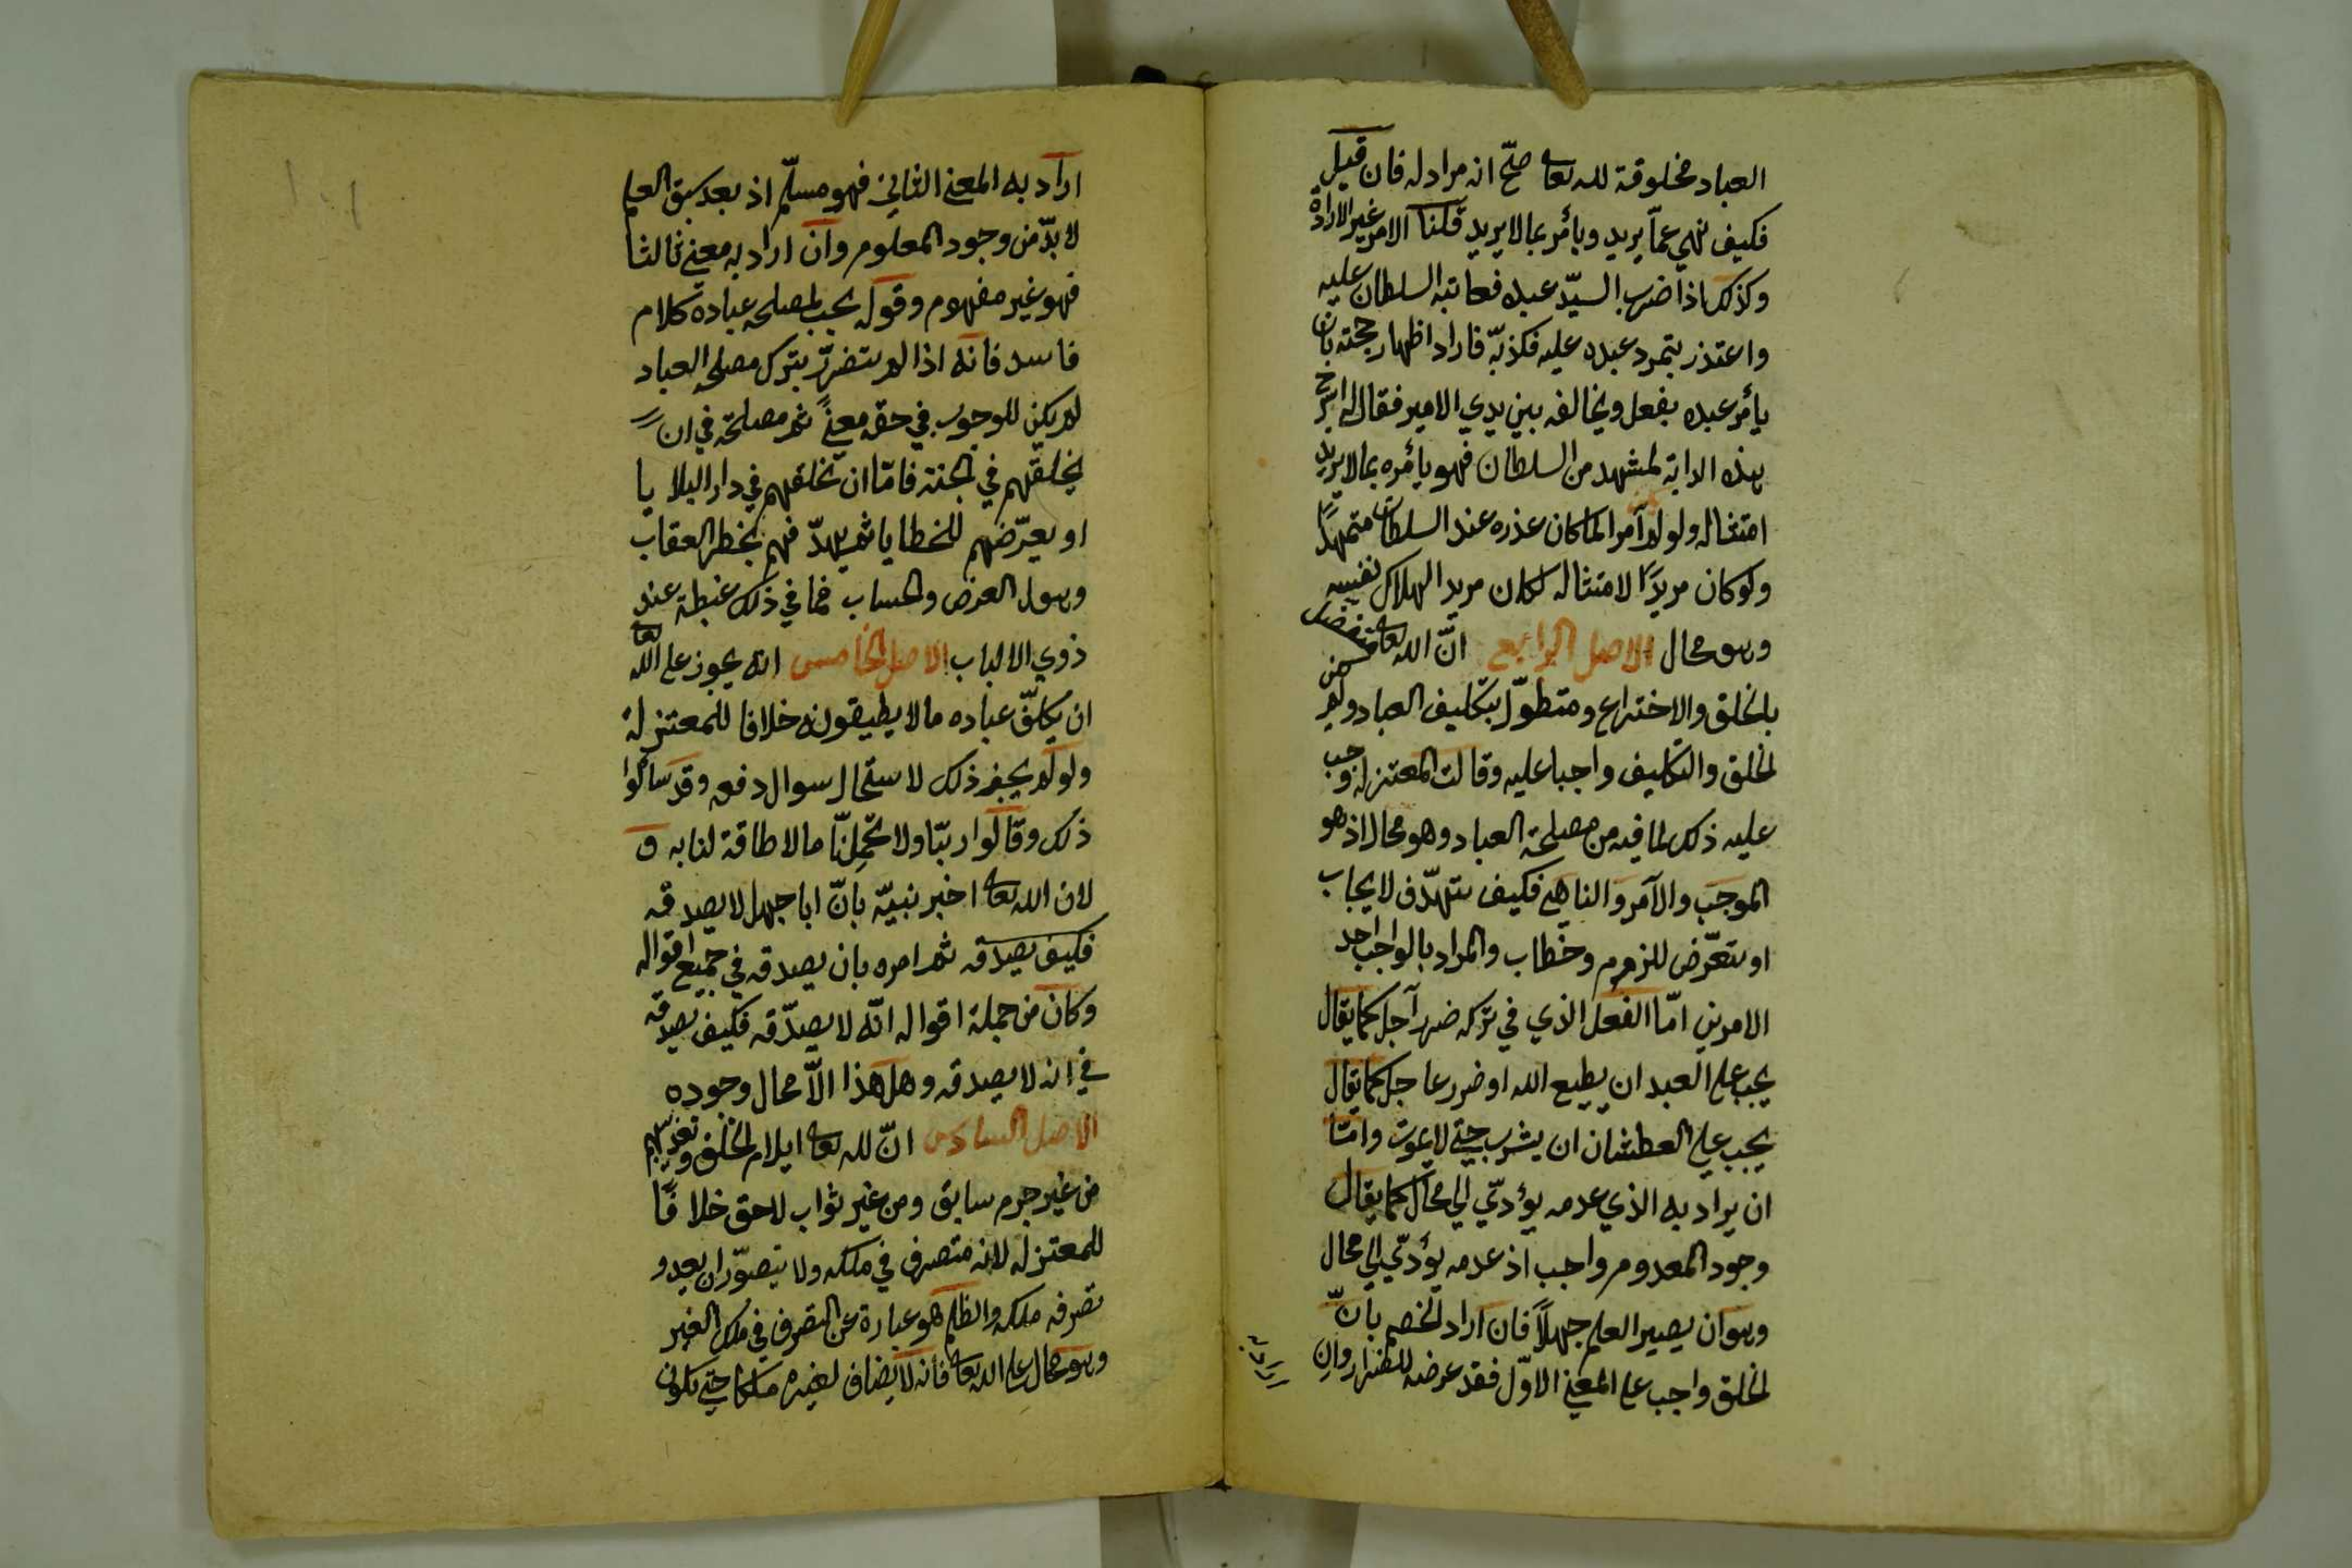 العباد مخلوقة لله تعا صحّ انه مراد له فان قيل
فكيف نهي عمّا يريد ويأمر بما لا يريد قلنا الامر غير الارادة
وكذلك اذا ضرب السيّد عبده فعاتبه السلطان عليه
واعتذر بتمرد عبده عليه فكذبّه فاراد اظهار حجته بان
يأمر عبده بفعل ويخالفه بين يدي الامير فقال له اسرج
هذه الدابة لمشهد من السلطان فهو يأمره بما لا يريد
امتثاله ولو لم آمرا لما كان عذره عند السلطان متمهدًا
ولو كان مريدًا لامتثاله لكان مريدا لهلاك نفسه
وهو محال الاصل الرابع انّ الله تعا متفضل
بالخلق والاختراع ومتطوّل بتكليف العباد ولم يكن
الخلق والتكليف واجبا عليه وقالت المعتزلة وجب
عليه ذلك لما فيه من مصلحة العباد وهو محال اذ هو
الموجب والآمر والناهي فكيف يتهدّف لايجاب
او يتعرّض للزوم وخطاب والمراد بالواجب احد
الامرين امّا الفعل الذي في تركه ضرر آجل كما يقال
يجب على العبد ان يطيع الله او ضرر عاجل كما يقال
يجب علي العطشان ان يشرب حتي لا يموت وامّا
ان يراد به الذي عدمه يؤدّي الي محال كما يقال
وجود المعدوم واجب اذ عدمه يؤدّي الي محال
وهو ان يصير العلم جهلًا فان اراد الخصم بانّ
الخلق واجب علي المعني الاوّل فقد عرضه للضرار وان
اراد به
اراد به المعني الثاني فهو مسلّم اذ بعد سبق العلم
لا بدّ من وجود المعلوم وان اراد به معني ثالثا
فهو غير مفهوم وقوله يجب لمصلحه عباده كلام
فاسد فانه اذا لم يتضرّر بترك مصلحه العباد
لم يكن للوجوب في حقه معنيً ثم مصلحته في ان
يخلقهم في الجنة فامّا ان يخلقهم في دار البلايا
او يعرّضهم للخطايا ثم يهدّفهم بخطر العقاب
وهول العرض والحساب فما في ذلك غبطة عند
ذوي الالباب الاصل الخامس انه يجوز على الله تعا
ان يكلّف عباده ما لا يطيقونه خلافا للمعتزلة
ولو لم يجز ذلك لاستحال سوال دفعه وقد سألوا
ذلك وقالوا ربّنا ولا تحمّلنا ما لا طاقة لنا به و
لان الله تعا اخبر نبيّه بانّ ابا جهل لا يصدقه
فكيف يصدقه ثم امره بان يصدقه في جميع اقواله
وكان من جملة اقواله انّه لا يصدّقه فكيف يصدقه
في انه لا يصدقه وهل هذا الّا محال وجوده
الاصل السادس انّ لله تعا ايلام الخلق وتعذيبهم
من غير جرم سابق ومن غير ثواب لاحق خلافًا
للمعتزلة لانه متصرف في ملكه ولا يتصوّر ان يعدو
تصرفه ملكه والظلم هو عبارة عن التصرف في ملك الغير
وهو محال على الله تعا فانه لا يضاف لغيره ملكا حتي يكون